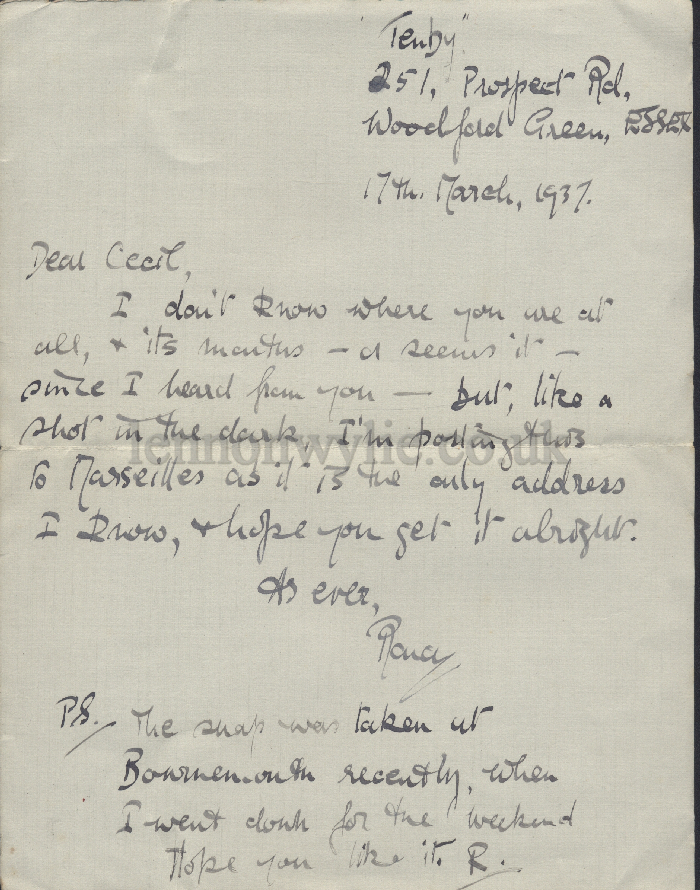 "Tenby"
251, Prospect Rd,
Woodford Green, ESSEX
17th. March, 1937.
Dear Cecil,
I don't know where you are at
all, & its months – or seems it –
since I heard from you — but, like a
shot in the dark I'm posting this
to Marseilles as it is the only address
I know, & hope you get it alright.
As ever,
PS. The snap was taken at
Bournemouth recently, when
I went down for the weekend
Hope you like it. R.
lennonwylie.co.uk